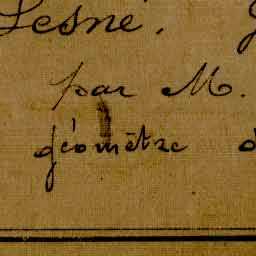 Lesné.
par M.
géomètre